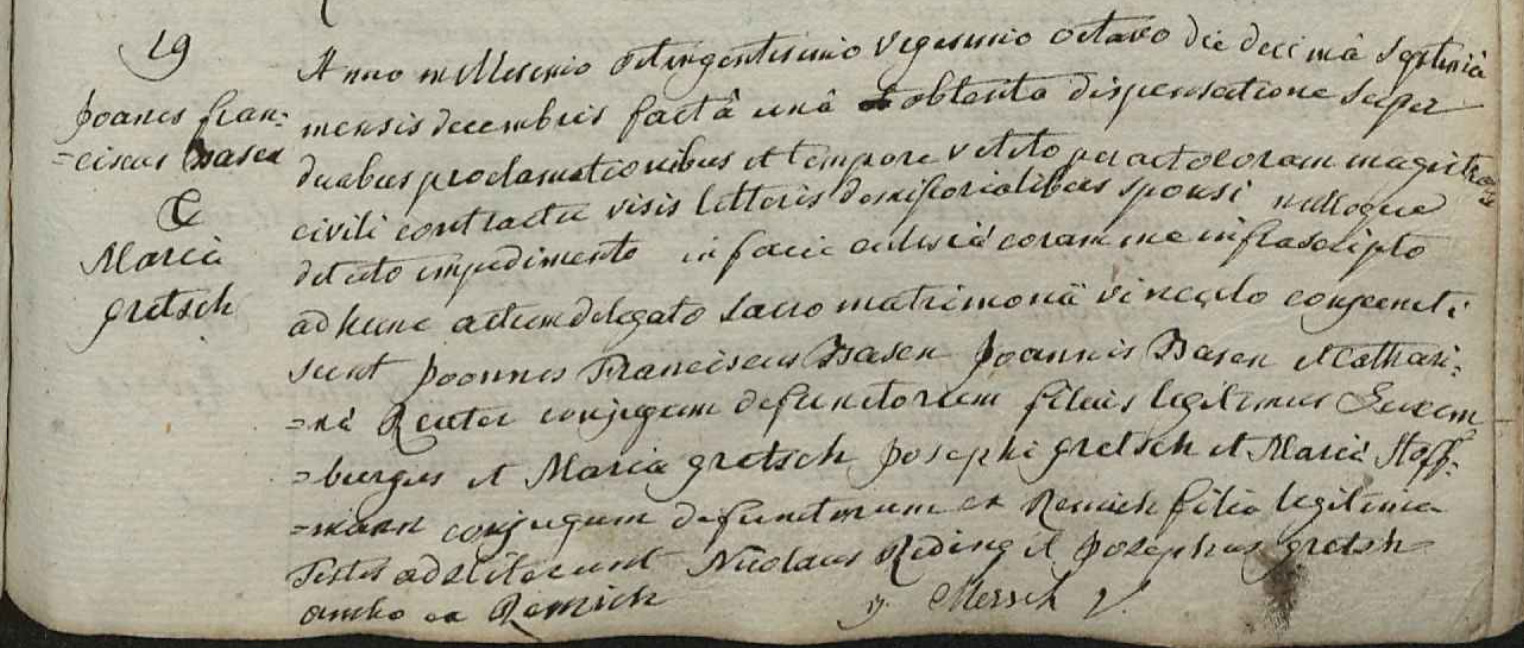 19
Joanes Fran=
=ciscus Basen
&
Maria
gretsch
Anno millesimo octingentesimo vigesimo octavo die decimâ septimâ
mensis decembris factâ unâ obtenta dispensatione super
duabus proclamationibus et tempore vetito peracto coram magistratu
civili contractu visis litteris demissorialibus sponsi nulloque
detecto impedimento in facie eclesiæ coram me infrascripto
ad hunc actum delegato sacro matrimonii vinculo conjuncti
sunt Joannes Franciscus Basen Joannis Basen et Cathari=
=næ Reuter conjugum defunctorum filius legitimus Luxem
=burgus et Maria gretsch Josephi gretsch et Mariæ Hoff=
=mann conjugum defunctorum ex Remich filia legitima
Testes adstiterunt Nicolaus Reding et Josephus gretsch
ambo ex Remich Mersch V.